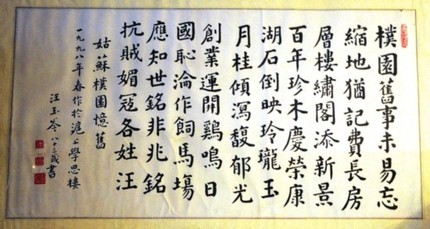 樸園舊事未易忘
縮地猶記費長房
層樓繡閣添新景
百年珍木慶榮康
湖石倒映玲瓏玉
月桂傾瀉馥郁光
創業運開鷄鳴日
國恥淪作飼馬場
應知世銘非兆銘
抗賊媚寇各姓汪
姑蘇樸園憶舊
一九九八年春作於滬上學思樓
汪玉岑八十六歲書